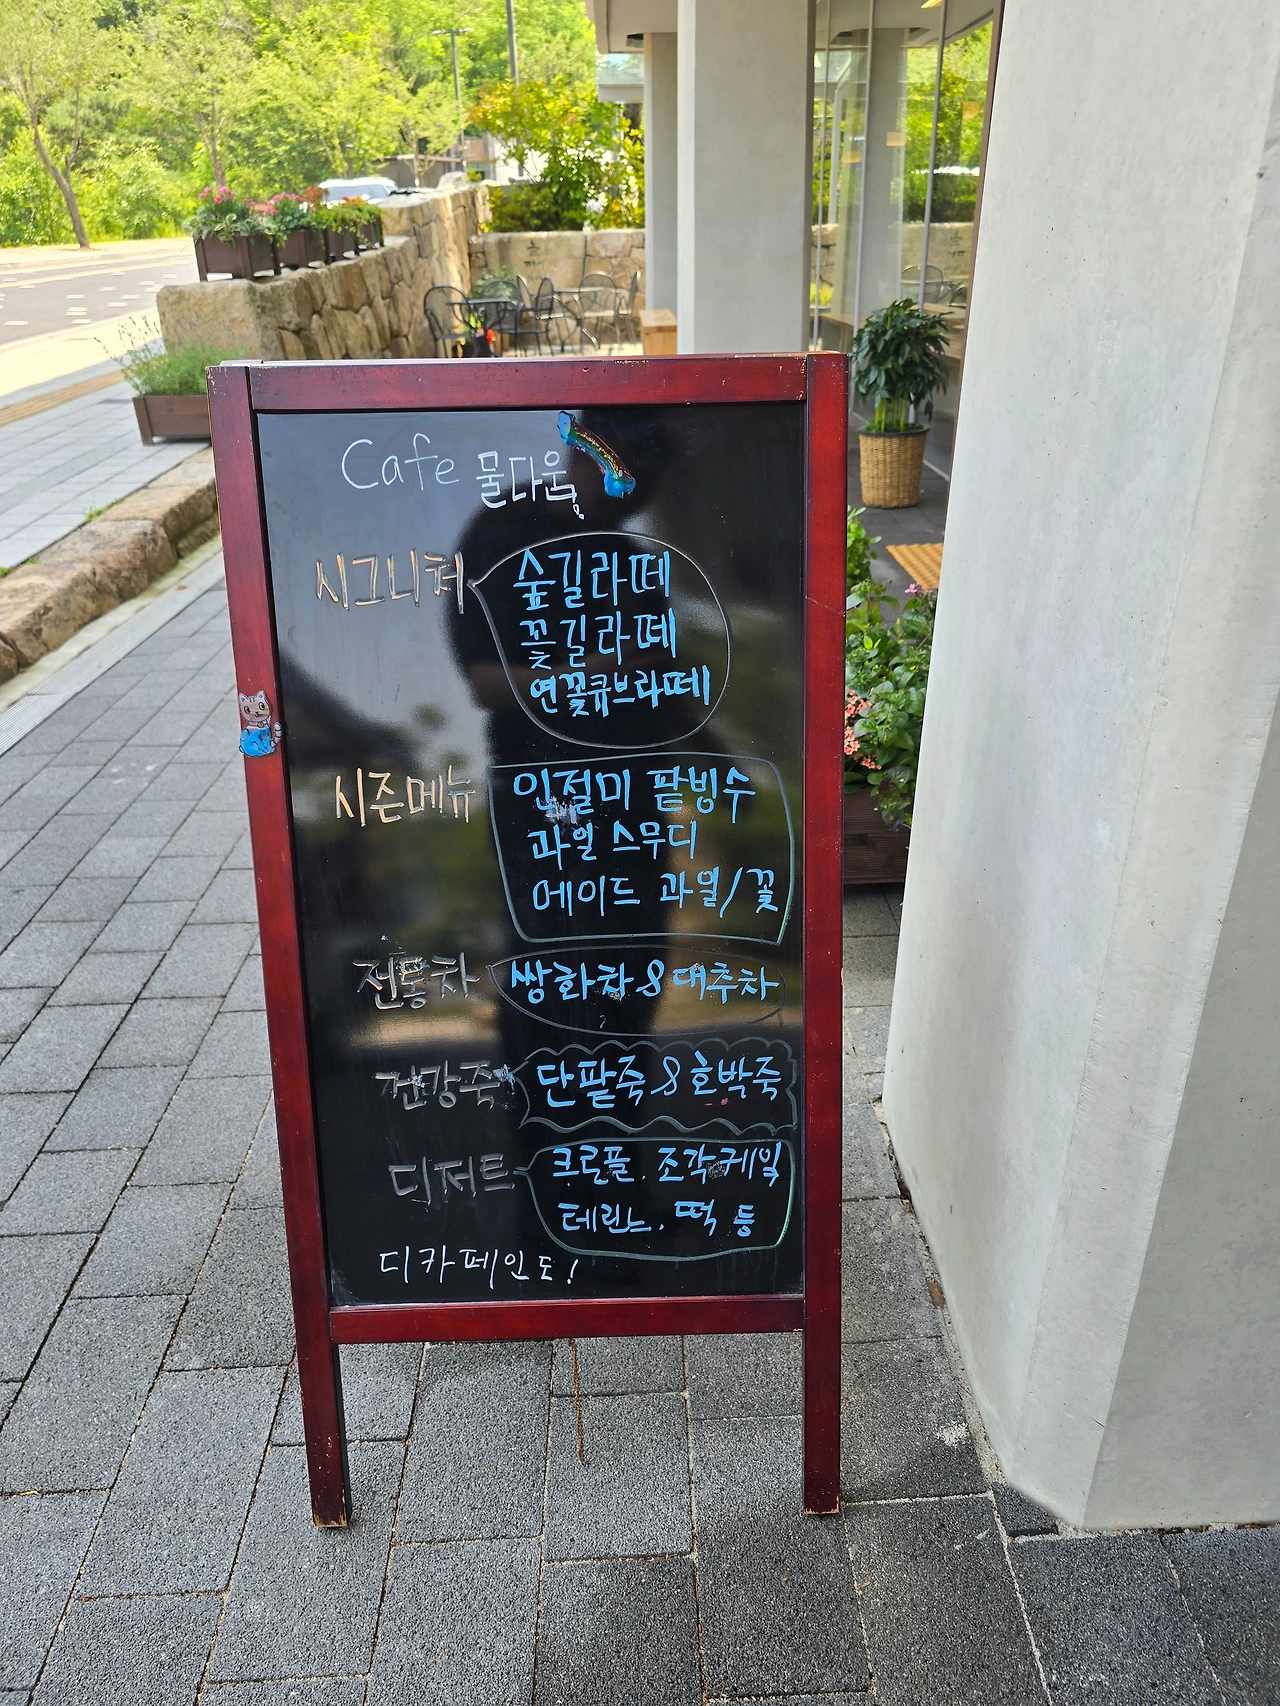 Cafe 물다움
시그니처
숲길라떼
꽃길라떼
연꽃큐브라떼
시즌메뉴
인절미 팥빙수
과일 스무디
에이드 과일/꽃
전통차
쌍화차 & 대추차
건강죽
단팥죽 & 호박죽
디저트
크로플. 조각케잌
테린느. 떡 등
디카페인도!